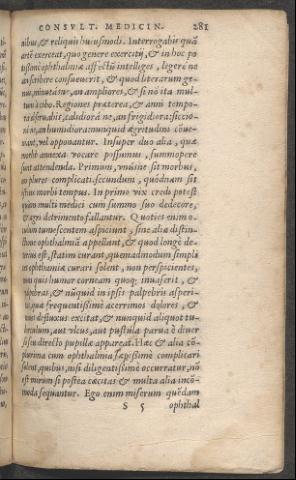 CONSVLT. MEDICIN. 281
nibus, & reliquis huiusmodi. Interrogabis quā
artē exerceat, quo genere exercitij, & in hoc po
tißimū ophthalmiæ affectu intelliges, legere ne
an scribere consueuerit, & quod literarum ge-
nus, minutûs ne, an ampliores, & si nō ita mul-
tum à cibo. Regiones præterea, & anni tempo-
ra consyderabis, calidiorá ne, an frigidiora: siccio
ra ne, an humidiora nunquid ægritudini cōue-
niant, vel opponantur. Insuper duo alia, quæ
morbi annexa vocare possumus, summopere
sunt attendenda. Primum, vnúsne sit morbus,
an plures complicati: secundum, quódnam sit
istius morbi tempus. In primo vix credi potest
quàm multi medici cum summo suo dedecore,
& ægri detrimento fallantur. Quoties enim o-
culum tumescentem aspiciunt, sine alia distin-
ctione ophthalmiā appellant, & quod longè de-
terius est, statim curant, quemadmodum simpli
ces ophthalmiæ curari solent, non perspicientes,
num quis humor corneam quoq; inuaserit, &
palpebras, & nūquid in ipsis palpebris asperi-
tas, quæ frequentißimè acerrimos dolores, &
nouas defluxus excitat, & nunquid aliquot tu-
berculum, aut vlcus, aut pustula parua è diuer
so seu directo pupillæ appareat. Hæc & alia cō-
plurima cum ophthalmia sæpißimè complicari
solent, quibus, nisi diligentißimè occurratur, nō
est mirum si postea cæcitas & multa alia incō-
moda sequantur. Ego enim miserum quēdam
S 5 ophthal